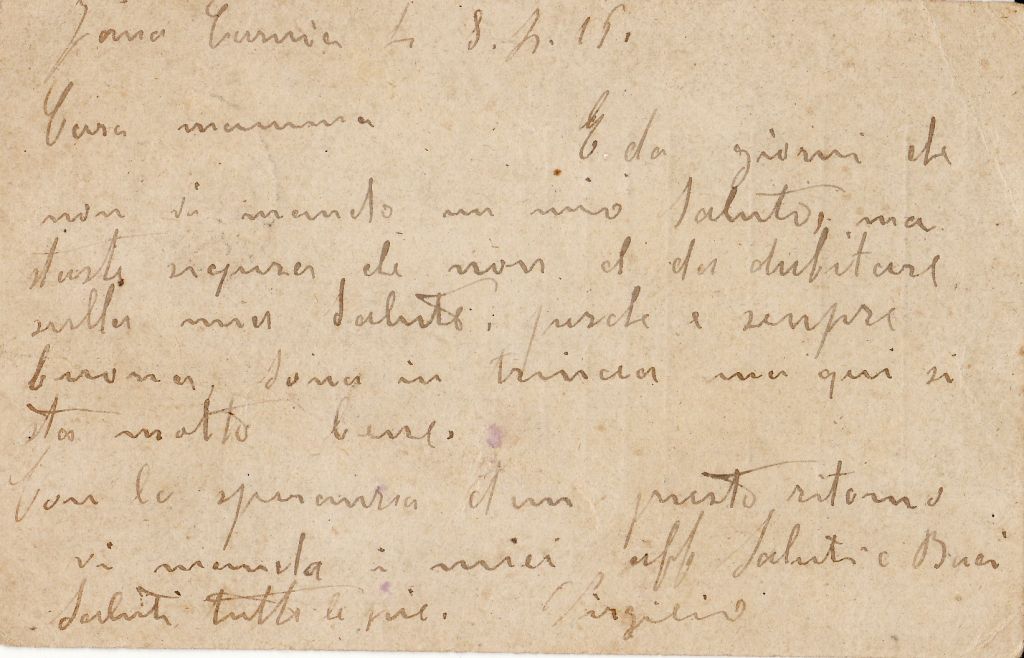 Zona Carnia li 8. 15.
Cara mamma
E da giorni che
non vi mando un mio saluto, ma
state sigura che non d da dubitare
sulla mia salute, perche e senpre
buona, sono in trincia ma qui si
sta molto bene.
Con la speranza d'un presto ritorno
vi manda i miei aff saluti e Baci
saluti tutte le Virgilio